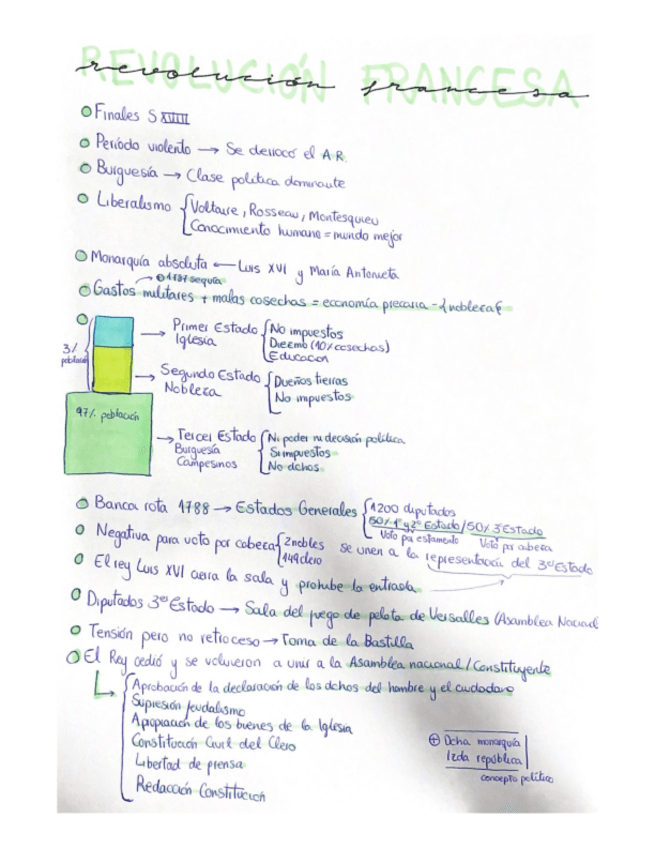 REVOLUCIÓN FRANCESA
revolución francesa
Finales S XVIII
Período violento → Se derrocó el A.R.
Burguesía → Clase política dominante
Liberalismo { Voltaire, Rosseau, Montesquieu
Conocimiento humano = mundo mejor
Monarquía absoluta ← Luis XVI y María Antonieta
→ 1787 sequía
Gastos militares + malas cosechas = economía precaria - {nobleza}
3% población
Primer Estado Iglesia { No impuestos
Diezmo (10% cosechas)
Educación
Segundo Estado Nobleza { Dueños tierras
No impuestos
97% población
Tercer Estado { Ni poder ni decisión política
Burguesía Si impuestos
Campesinos No dchos.
Banca rota 1788 → Estados Generales { 1200 diputados
50% 1º y 2º Estado / 50% 3º Estado
Voto por estamento Voto por cabeza
Negativa para voto por cabeza { 2 nobles
149 clero se unen a la representación del 3er Estado
El rey Luis XVI cierra la sala y prohibe la entrada
Diputados 3er Estado → Sala del juego de pelota de Versalles (Asamblea Nacional
Tensión pero no retroceso → Toma de la Bastilla
El Rey cedió y se volvieron a unir a la Asamblea nacional / Constituyente
Aprobación de la declaración de los dchos del hombre y el ciudadano
Supresión feudalismo
Apropiación de los bienes de la Iglesia
Constitución Civil del Clero
Libertad de prensa
Redacción Constitución
⊕ Dcha monarquía
Izda república
concepto político